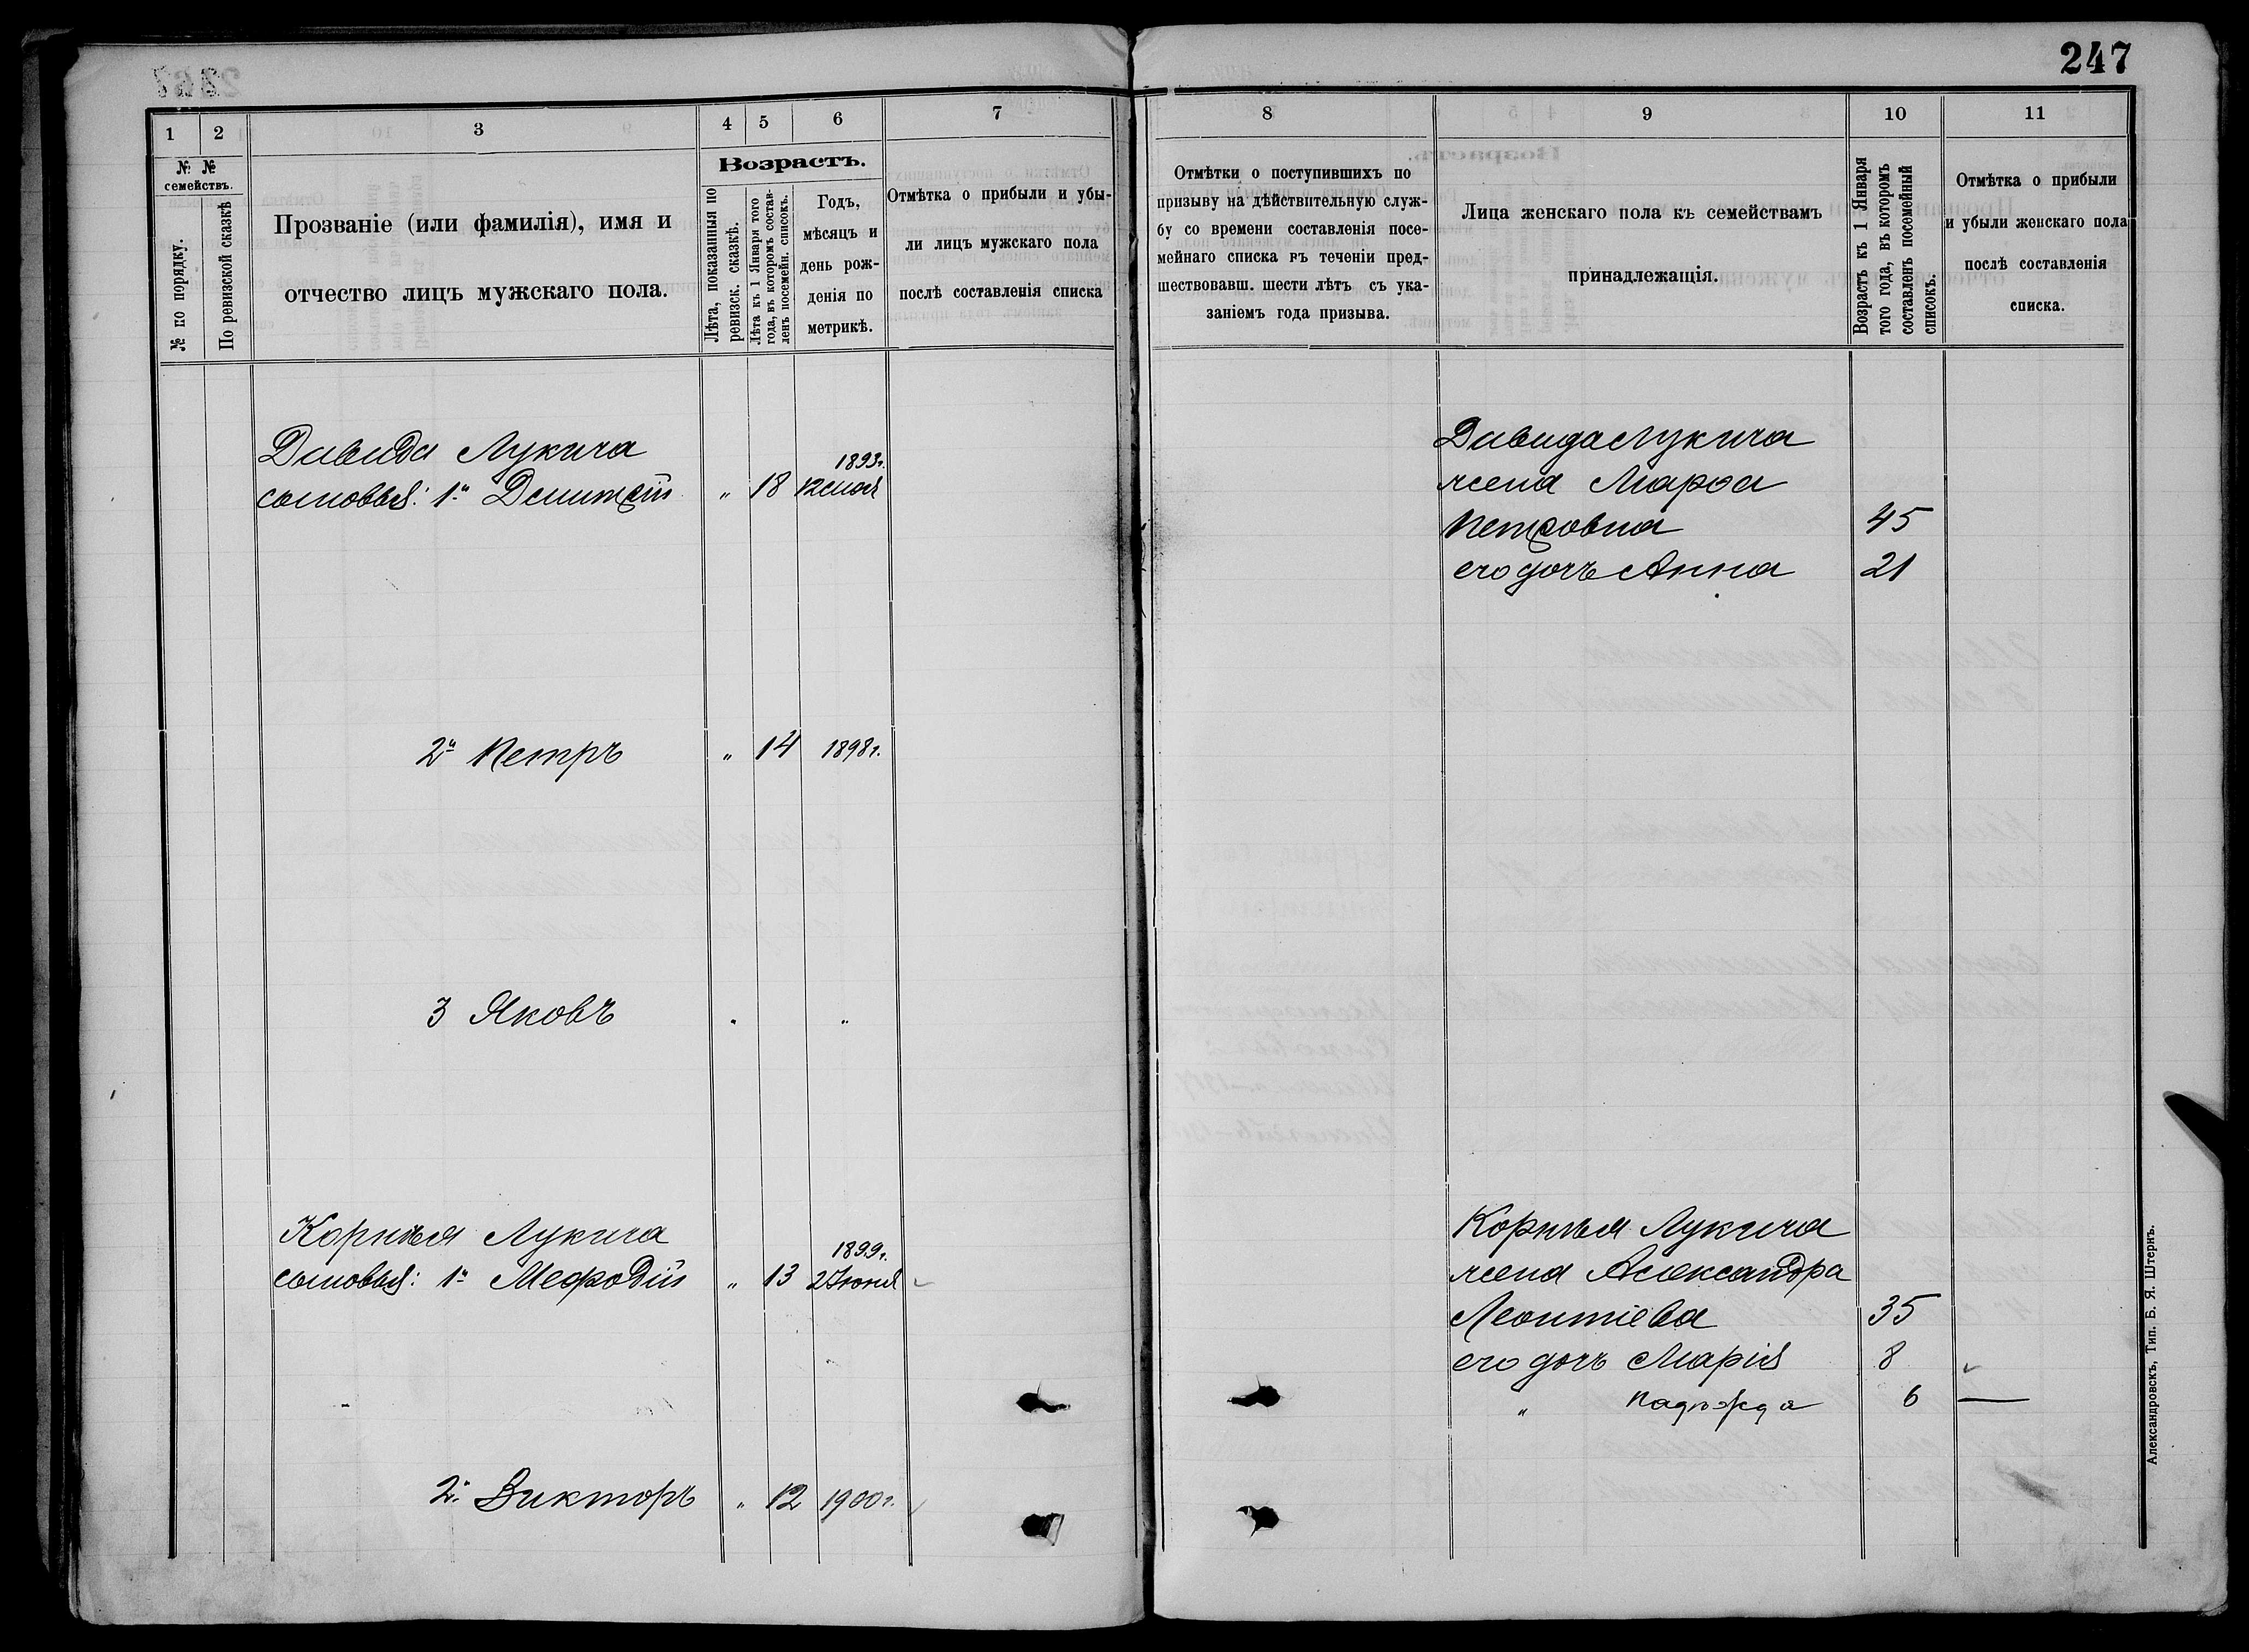 247
1 2 3 4 5 6 7
№ №
семействъ.
№ по порядку.
По ревизской сказкѣ
Прозваніе (или фамилія), имя и
отчество лицъ мужскаго пола.
Возрастъ.
Лѣта, показанныя по
ревизск. сказкѣ.
Лѣта къ 1 Января того
года, въ которомъ состав-
ленъ посемейн. списокъ.
Годъ,
мѣсяцъ и
день рож-
денія по
метрикѣ.
Отмѣтка о прибыли и убы-
ли лицъ мужскаго пола
послѣ составленія списка
Давида Лукича 1893г.
сыновья: 1й Дмитрій " 18 12 мая
2й Петръ " 14 1898г.
3 Яковъ " "
Корнѣя Лукича 1899г.
сыновья: 1й Мефодій " 13 2 Іюня
2й Викторъ " 12 1900г.
8 9 10 11
Отмѣтки о поступившихъ по
призыву на дѣйствительную служ-
бу со времени составленія посе-
мейнаго списка въ теченіи пред-
шествовавш. шести лѣтъ съ ука-
заніемъ года призыва.
Лица женскаго пола къ семействамъ
принадлежащія.
Возрастъ къ 1 Января
того года, въ которомъ
составленъ посемейный
списокъ.
Отмѣтка о прибыли
и убыли женскаго пола
послѣ составленія
списка.
Давида Лукича
жена Марфа
Петровна 45
его дочь Анна 21
Корнѣя Лукича
жена Александра
Леонтіева 35
его дочь Марія 8
" Надѣжда 6 —
Александровскъ, Тип. Б. Я. Штернъ.